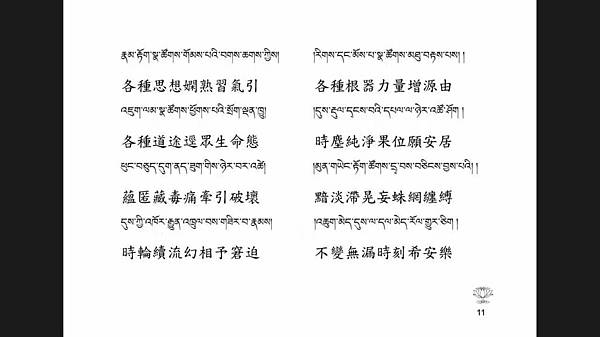 རྣམ་རྟོག་སྣ་ཚོགས་གོམས་པའི་བགས་ཆགས་ཀྱིས།
各種思想嫻熟習氣引
འཇུག་ལམ་སྣ་ཚོགས་ཕྱོགས་པའི་སྲོག་ལྡན་ཁྱུ།
各種道途逕眾生命態
ཕུང་བཅུད་དུག་ནད་ཟུག་གིས་ཉེར་བར་འཚེ།
蘊匿藏毒痛牽引破壞
དུས་ཀྱི་འཁོར་རྒྱུན་འཁྲུལ་བས་གཟིར་བ་རྣམས།
時輪續流幻相予窘迫
རིགས་དང་མོས་པ་སྣ་ཚོགས་མཐུ་བརྟས་པས། །
各種根器力量增源由
།དུས་རྡུལ་དྭངས་བའི་དཔལ་ལ་ཉེར་འཚོ་ཤོག །
時塵純淨果位願安居
།མུན་གཡེང་རྟོག་ཚོགས་དྲ་བས་བཅིངས་བྱས་པའི། །
黯淡滯晃妄蛛網纏縛
།འཆུག་མེད་དུས་ལ་དལ་མེད་རོལ་གྱུར་ཅིག །
不變無漏時刻希安樂
11